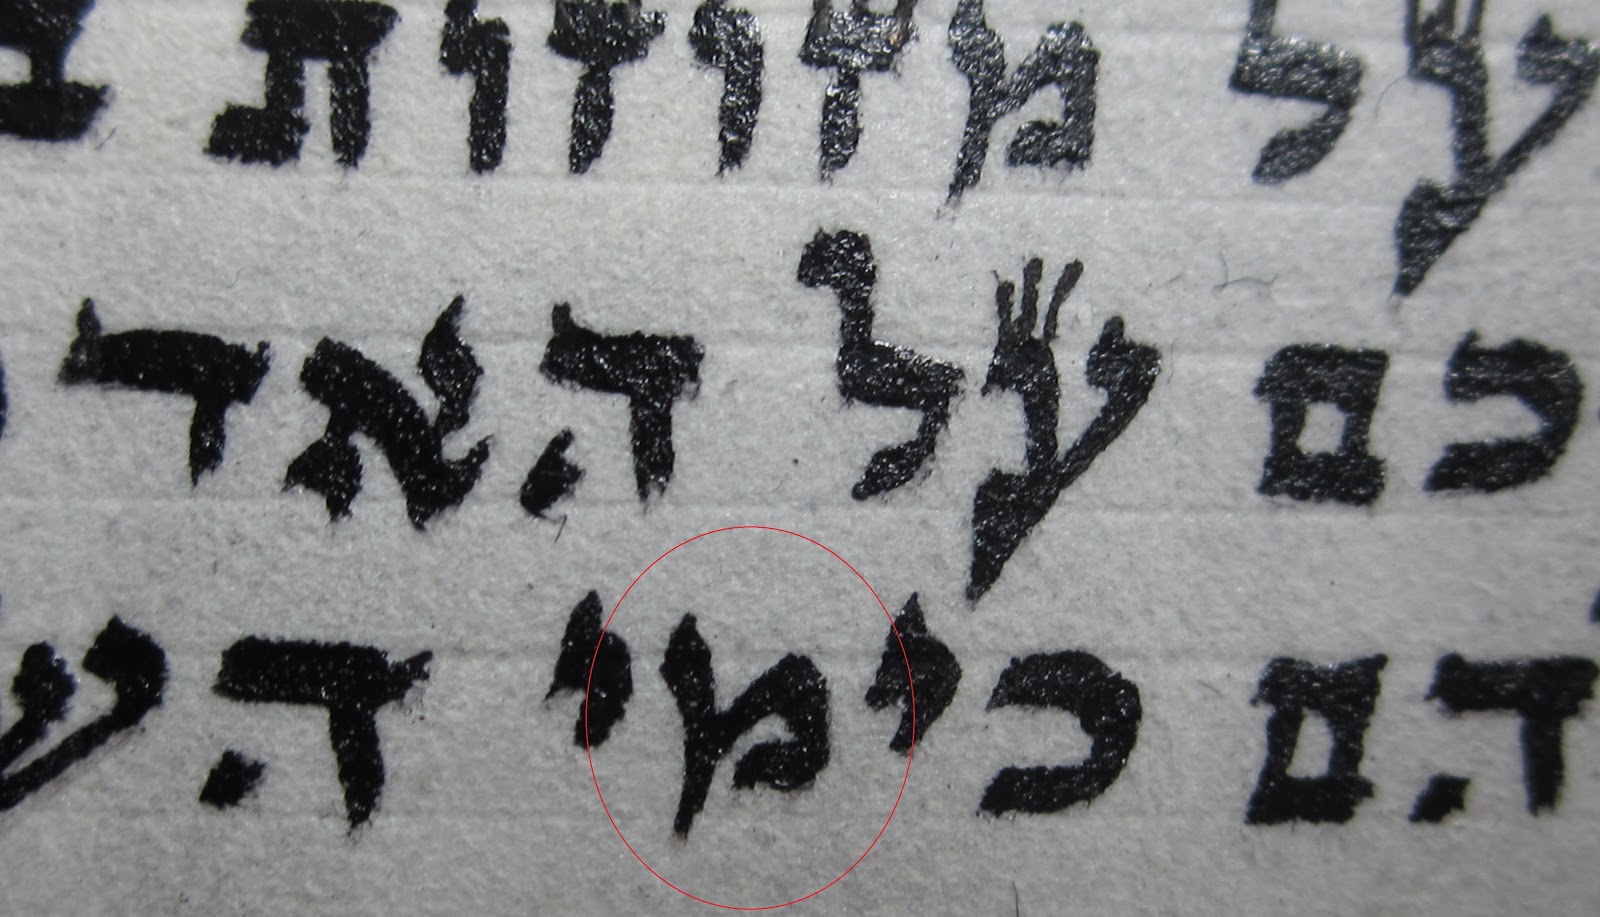 על מזוזות ב
כם על האד
הם כימי הש